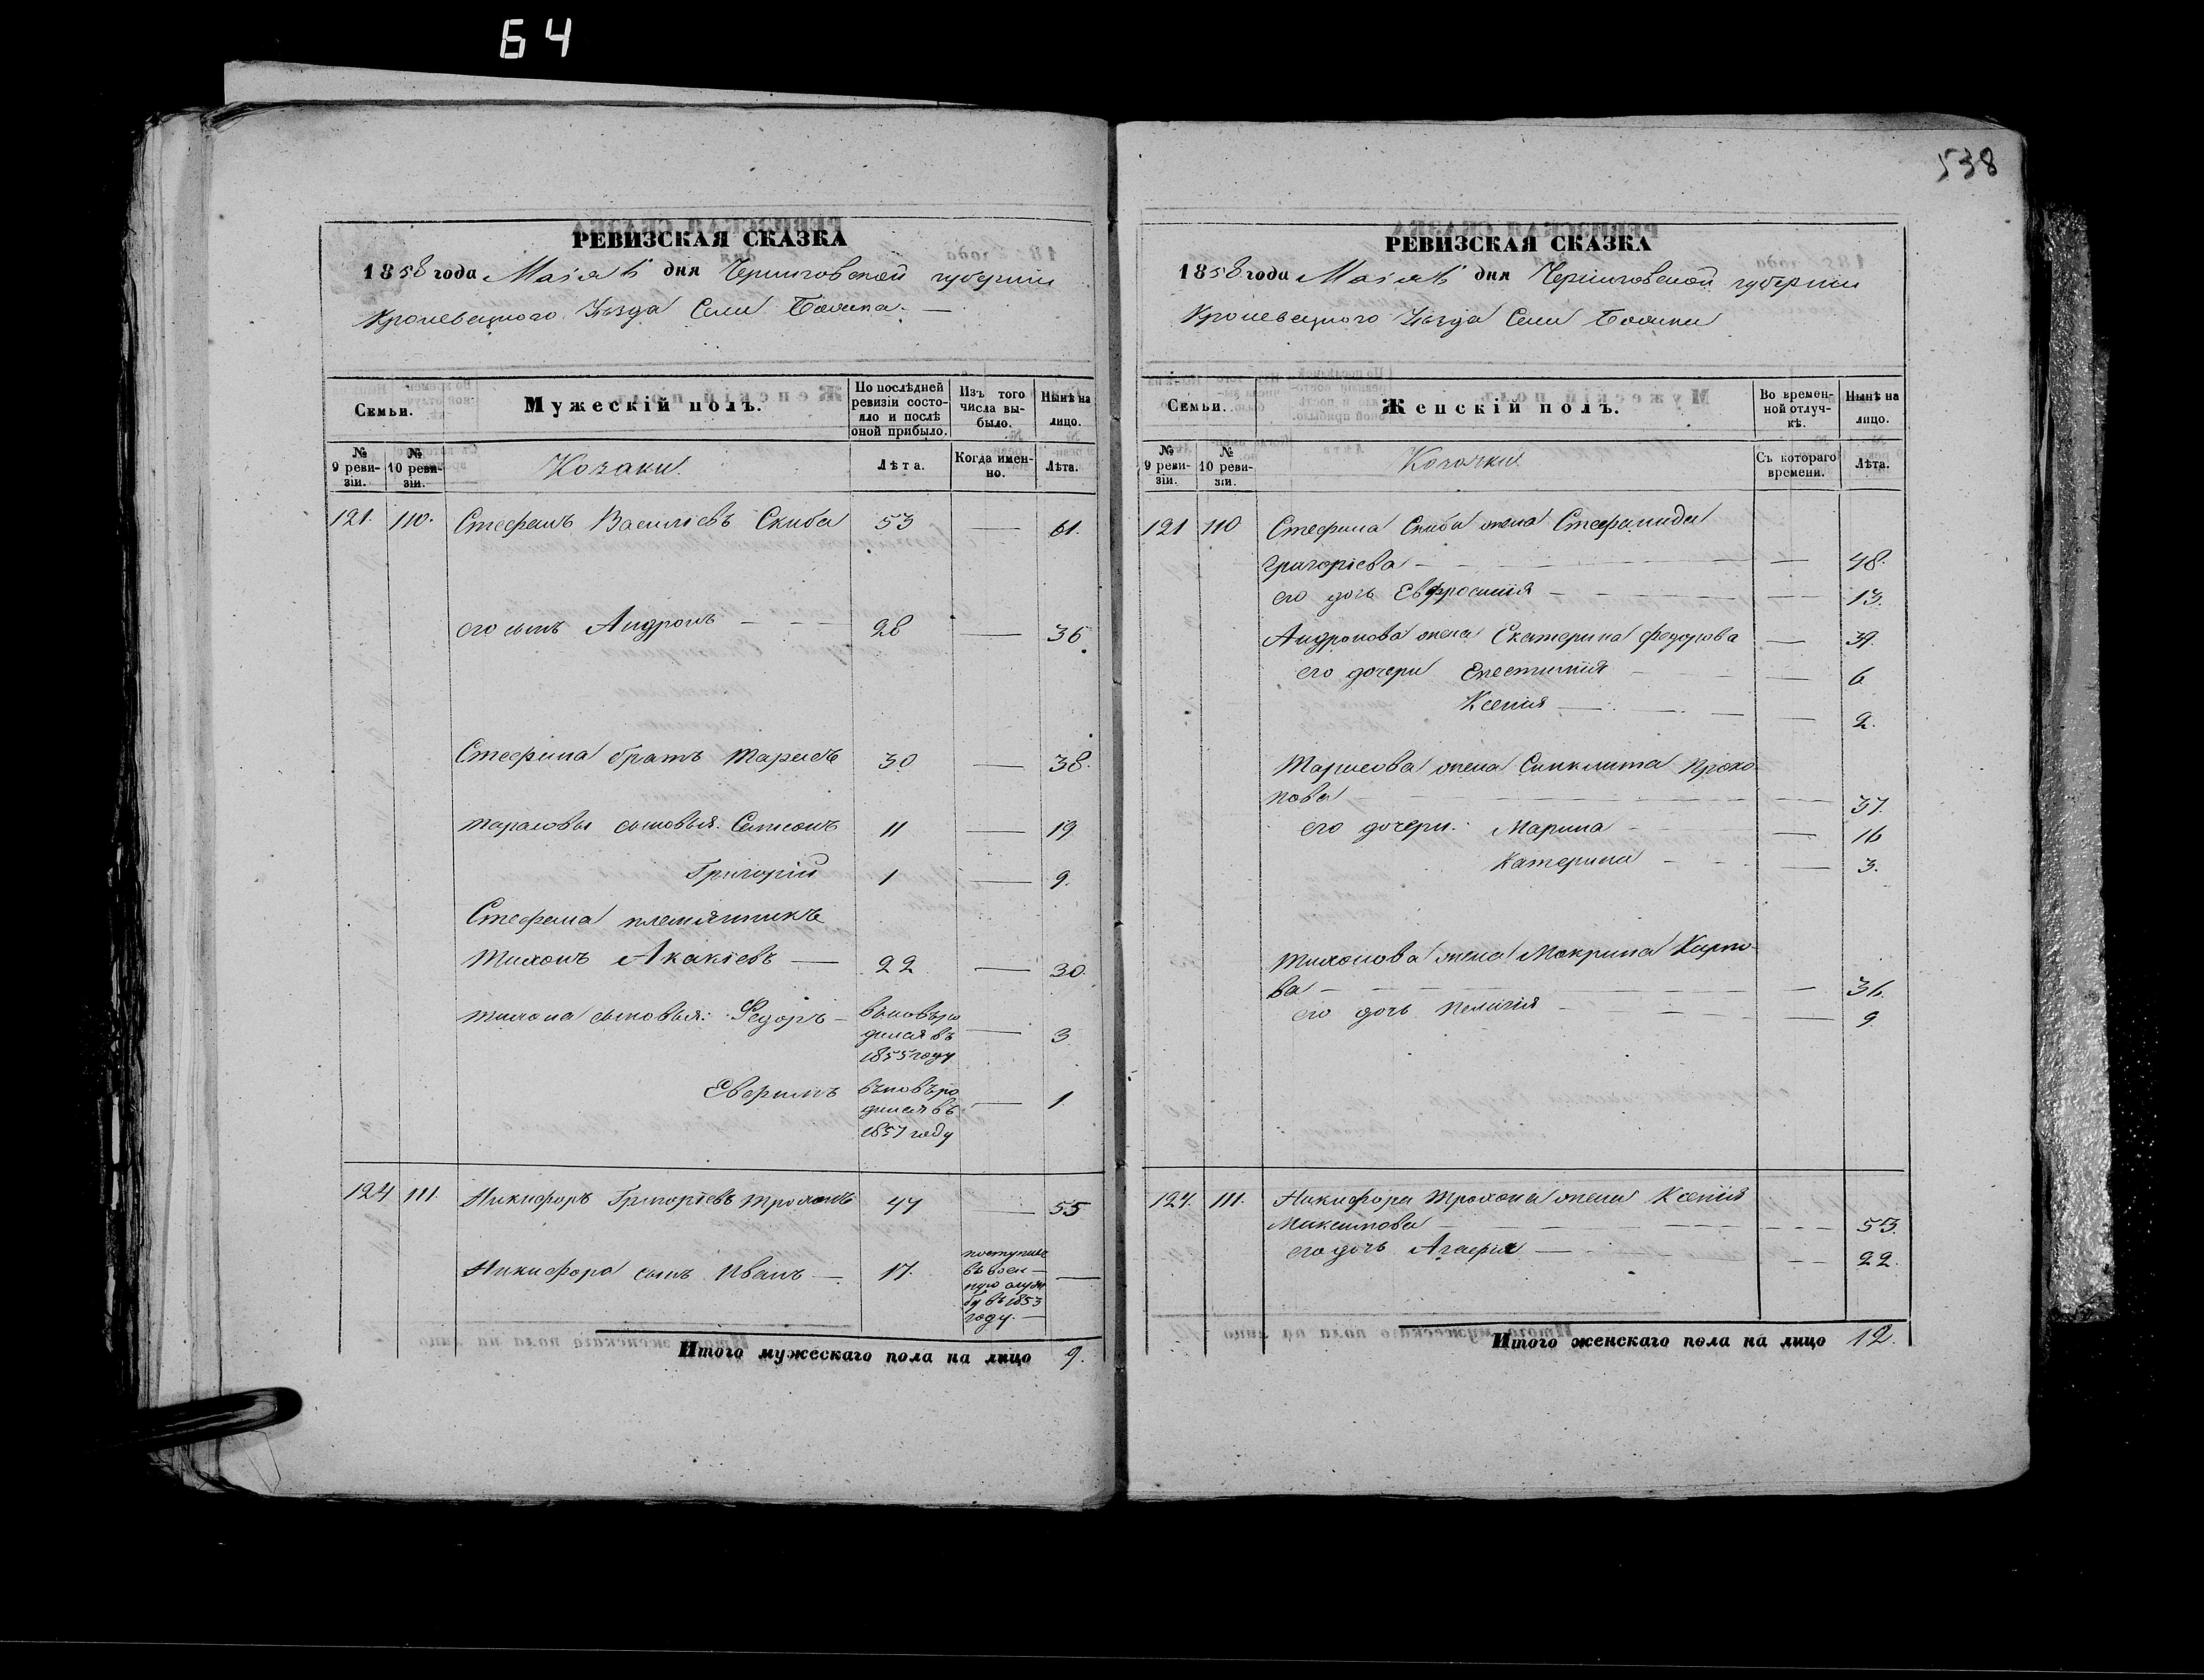 64
538
РЕВИЗСКАЯ СКАЗКА
1858 года Маія 6 дня Черниговской губерніи
Кролевецкого Уѣзда Села
Семьи.
Мужескій полъ.
По послѣдней ревизіи состояло и послѣ оной прибыло.
Изъ того числа выбыло.
Нынѣ на лицо.
№ 9 ревизіи.
№ 10 ревизіи.
Козаки.
Лѣта.
Когда именно.
Лѣта.
121. 110. Стефанъ Василіевъ Скиба 53 — 61.
его сынъ Андронъ — — — 28 — 36
Стефана братъ Тарасъ 30 — 38.
Тарасовы сыновья: Самсонъ 11 — 19
Григорій 1 — 9.
Стефана племянникъ
Тихонъ Акакіевъ — 22 — 30.
Тихона сыновья: Федоръ — вновь ро
дился въ — 3
1855 году
вновь ро
дился въ — 1
1857 году
124 111. Никифоръ Григоріевъ 47 — 55
Никифора сынъ Иванъ — 17. поступилъ
въ воен—
ную служ
бу въ 1853
году. —
Итого мужескаго пола на лицо 9.
РЕВИЗСКАЯ СКАЗКА
1858 года Маія 6 дня Черниговской губерніи
Кролевецкого Уѣзда Села
Семьи.
Женскій полъ.
Во временной отлучкѣ.
Нынѣ на лицо.
№ 9 ревизіи.
№ 10 ревизіи.
Козачки.
Съ котораго времени.
Лѣта.
121 110 Стефана Скибы жена Стефанида
Григоріева — — 48.
его дочь Евфросинія — — 13.
Андронова жена Екатерина Федорова — 39.
его дочери — 6
Ксенія — — 2.
Тарасова жена Синклита Проко-
пова — — 37.
его дочери: Марина — — 16
Катерина — — 3.
Тихонова жена Макрина Карпо-
ва — — 36.
его дочь Пелагія — — 9
124. 111. Никифора жена Ксенія
Максимова — — 53.
его дочь Агафія — — 22.
Итого женскаго пола на лицо 12.